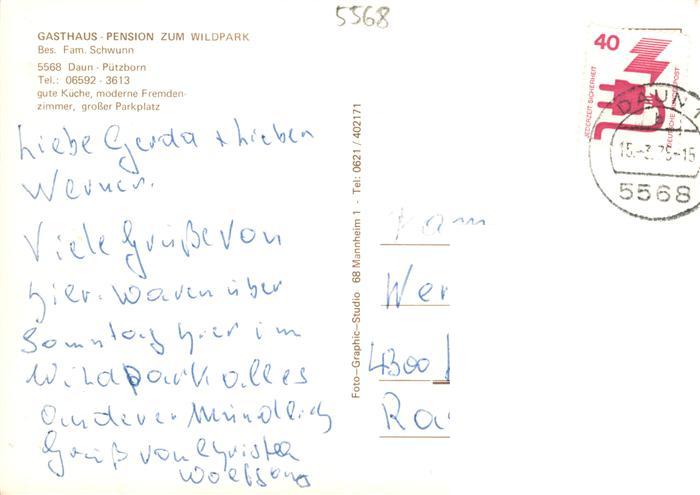 5568
GASTHAUS - PENSION ZUM WILDPARK
Bes. Fam. Schwunn
5568 Daun - Pützborn
Tel.: 06592 - 3613
gute Küche, moderne Fremden-
zimmer, großer Parkplatz
Liebe Gerda + lieben
Werner.
Viele Grüße von
hier. Waren über
Sonntag hier im
Wildpark alles
andere Mündlich
Gruß von Christa
40
JEDERZEIT SICHERHEIT
DEUTSCHE BUNDESPOST
DAUN 1
5568
Foto-Graphic-Studio 68 Mannheim 1 - Tel: 0621 / 402171
Wer
4300